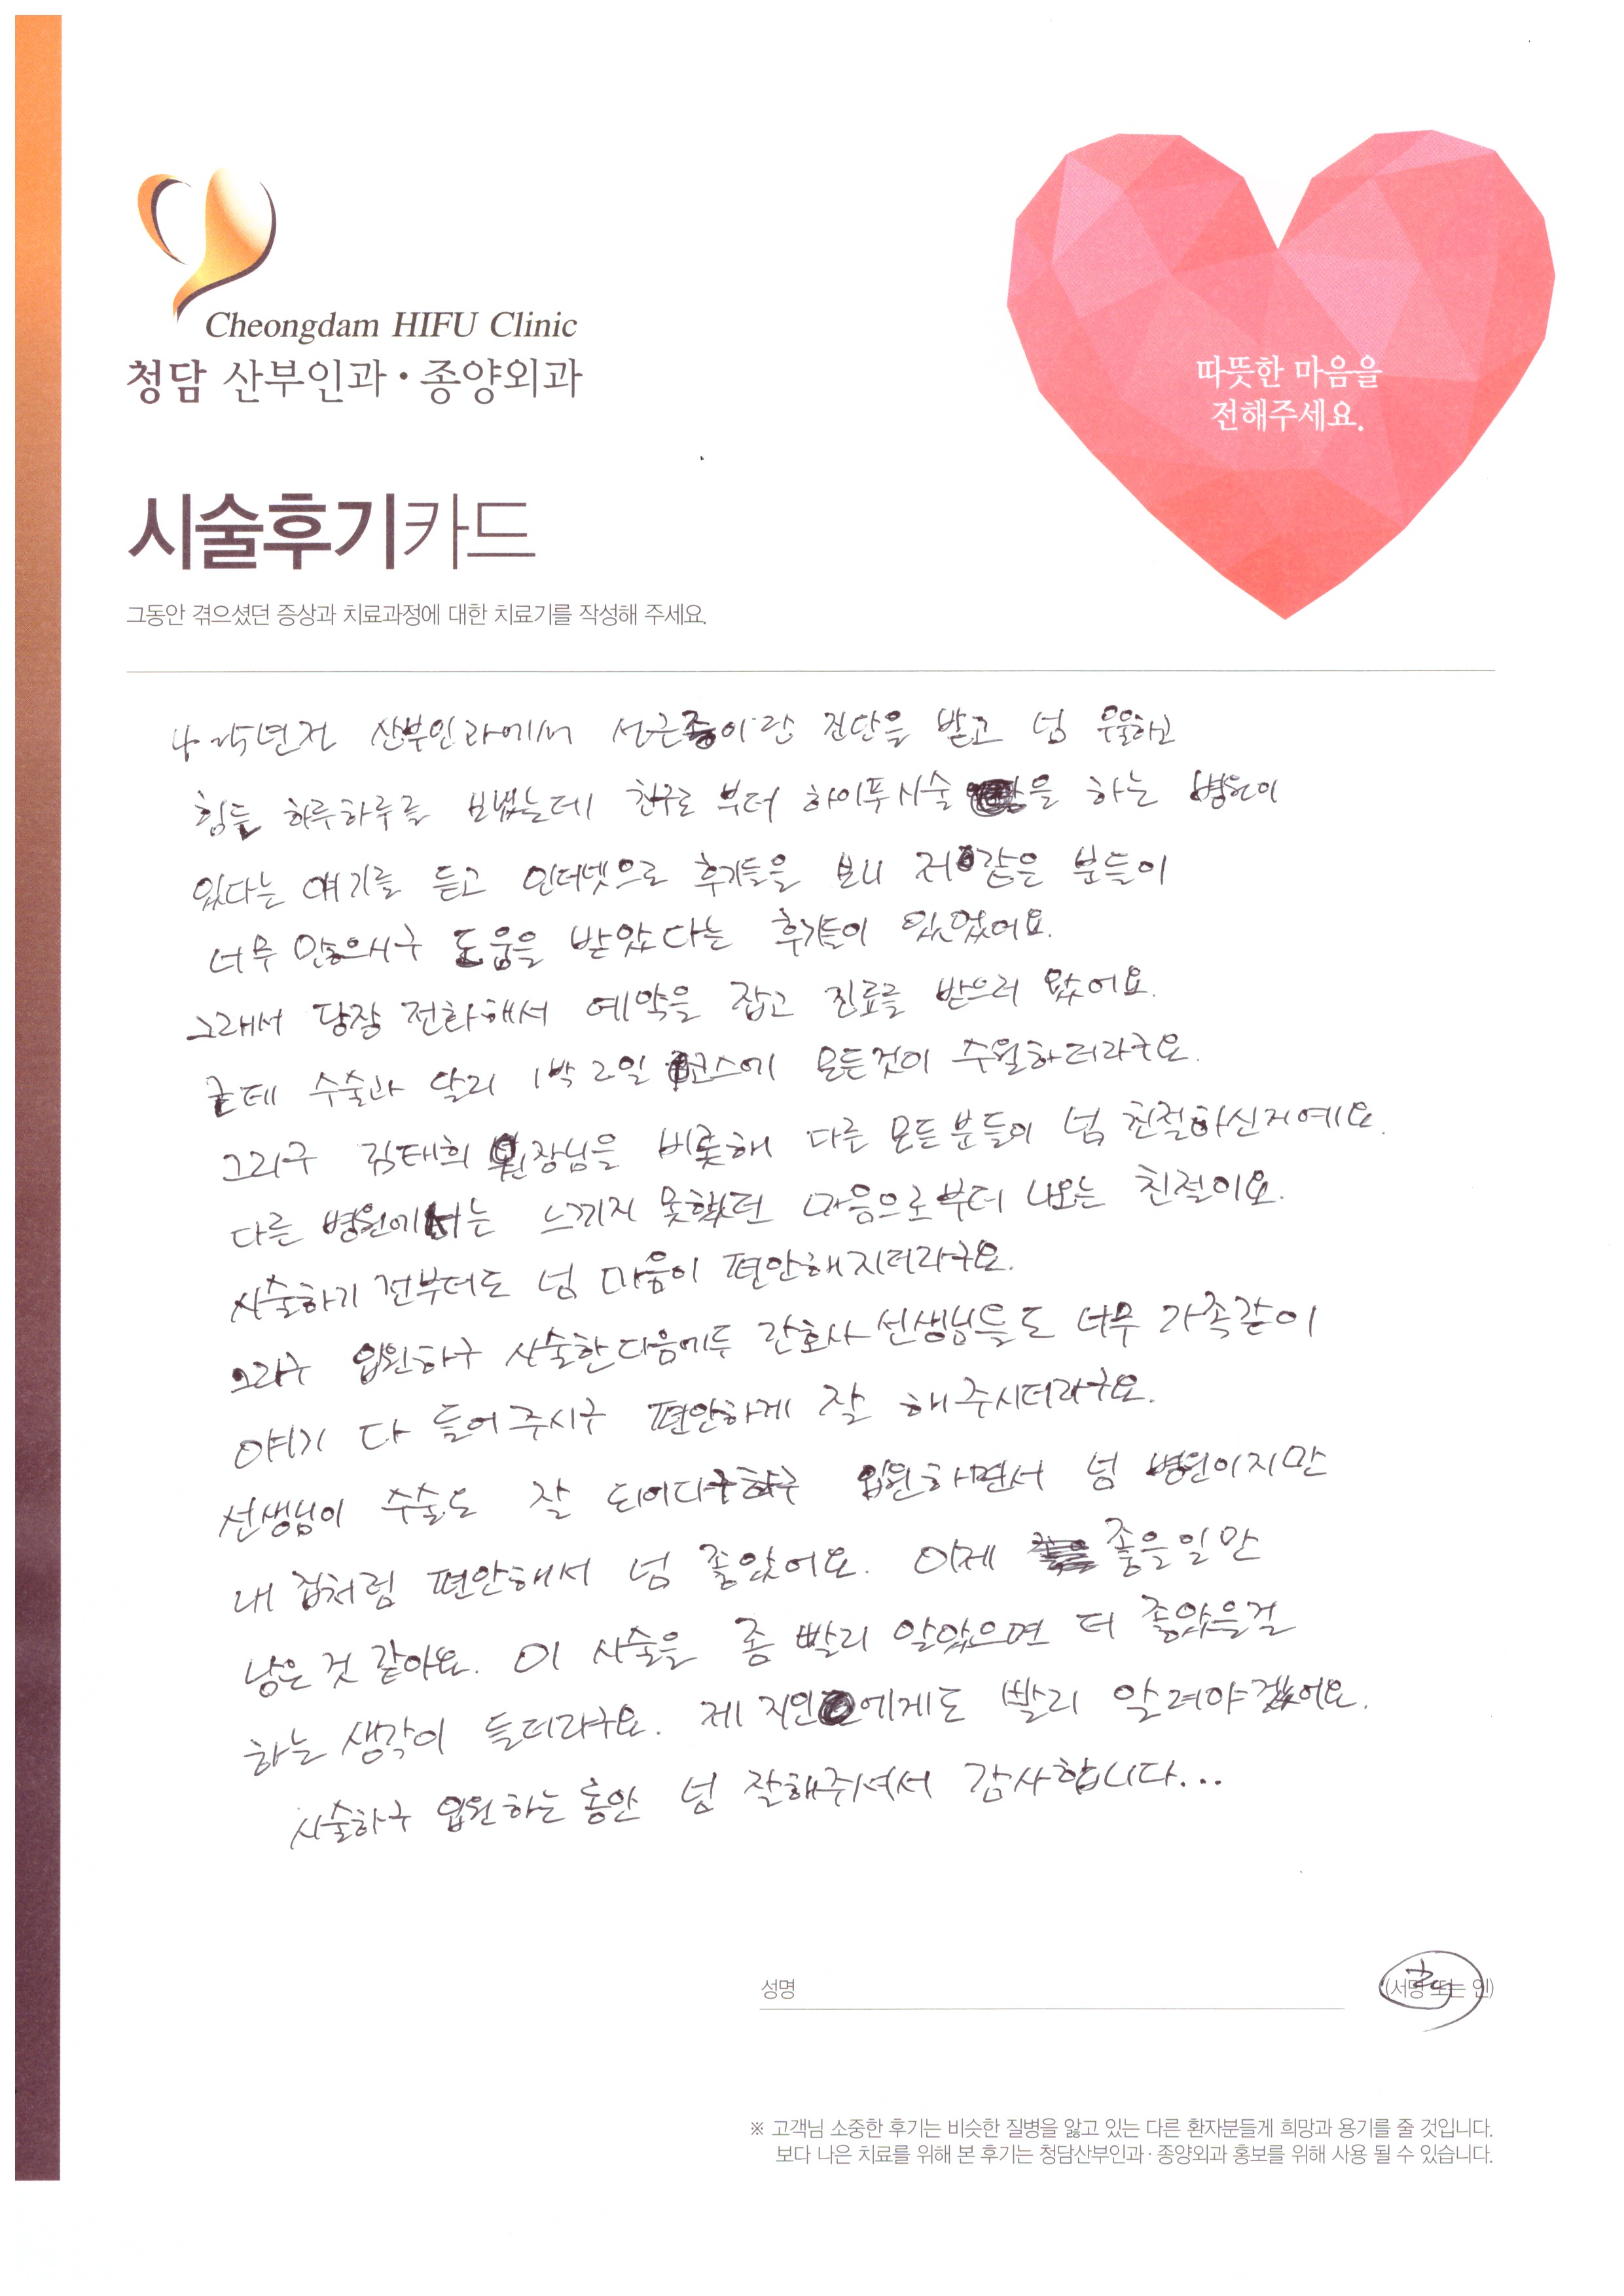 Cheongdam HIFU Clinic
청담 산부인과·종양외과
따뜻한 마음을
전해주세요.
시술후기카드
그동안 겪으셨던 증상과 치료과정에 대한 치료기를 작성해 주세요.
4~5년전 산부인과에서 선근종이란 진단을 받고 넘 우울하고
힘든 하루하루를 보냈는데 친구로 부터 하이푸시술을 하는 병원이
있다는 얘기를 듣고 인터넷으로 후기들을 보니 저같은 분들이
너무 많으시구 도움을 받았다는 후기들이 있었어요.
그래서 당장 전화해서 예약을 잡고 진료를 받으러 왔어요.
근데 수술과 달리 1박 2일 코스에 모든것이 수월하더라구요.
그리구 김태희 원장님을 비롯해 다른 모든분들이 넘 친절하신거예요.
다른 병원에서는 느끼지 못했던 마음으로부터 나오는 친절이요.
시술하기 전부터도 넘 마음이 편안해지더라구요.
그리구 입원하구 시술한다음에두 간호사 선생님들도 너무 가족같이
얘기 다 들어주시구 편안하게 잘 해주시더라구요.
선생님이 수술도 잘 되어다구하구 입원하면서 넘 병원이지만
내 집처럼 편안해서 넘 좋았어요. 이제 좋을일만
남은 것 같아요. 이 시술을 좀 빨리 알았으면 더 좋았을걸
하는 생각이 들더라구요. 제 지인에게도 빨리 알려야겠어요.
시술하구 입원하는 동안 넘 잘해주셔서 감사합니다...
성명
(서명 또는 인)
※ 고객님 소중한 후기는 비슷한 질병을 앓고 있는 다른 환자분들게 희망과 용기를 줄 것입니다.
보다 나은 치료를 위해 본 후기는 청담산부인과·종양외과 홍보를 위해 사용 될 수 있습니다.